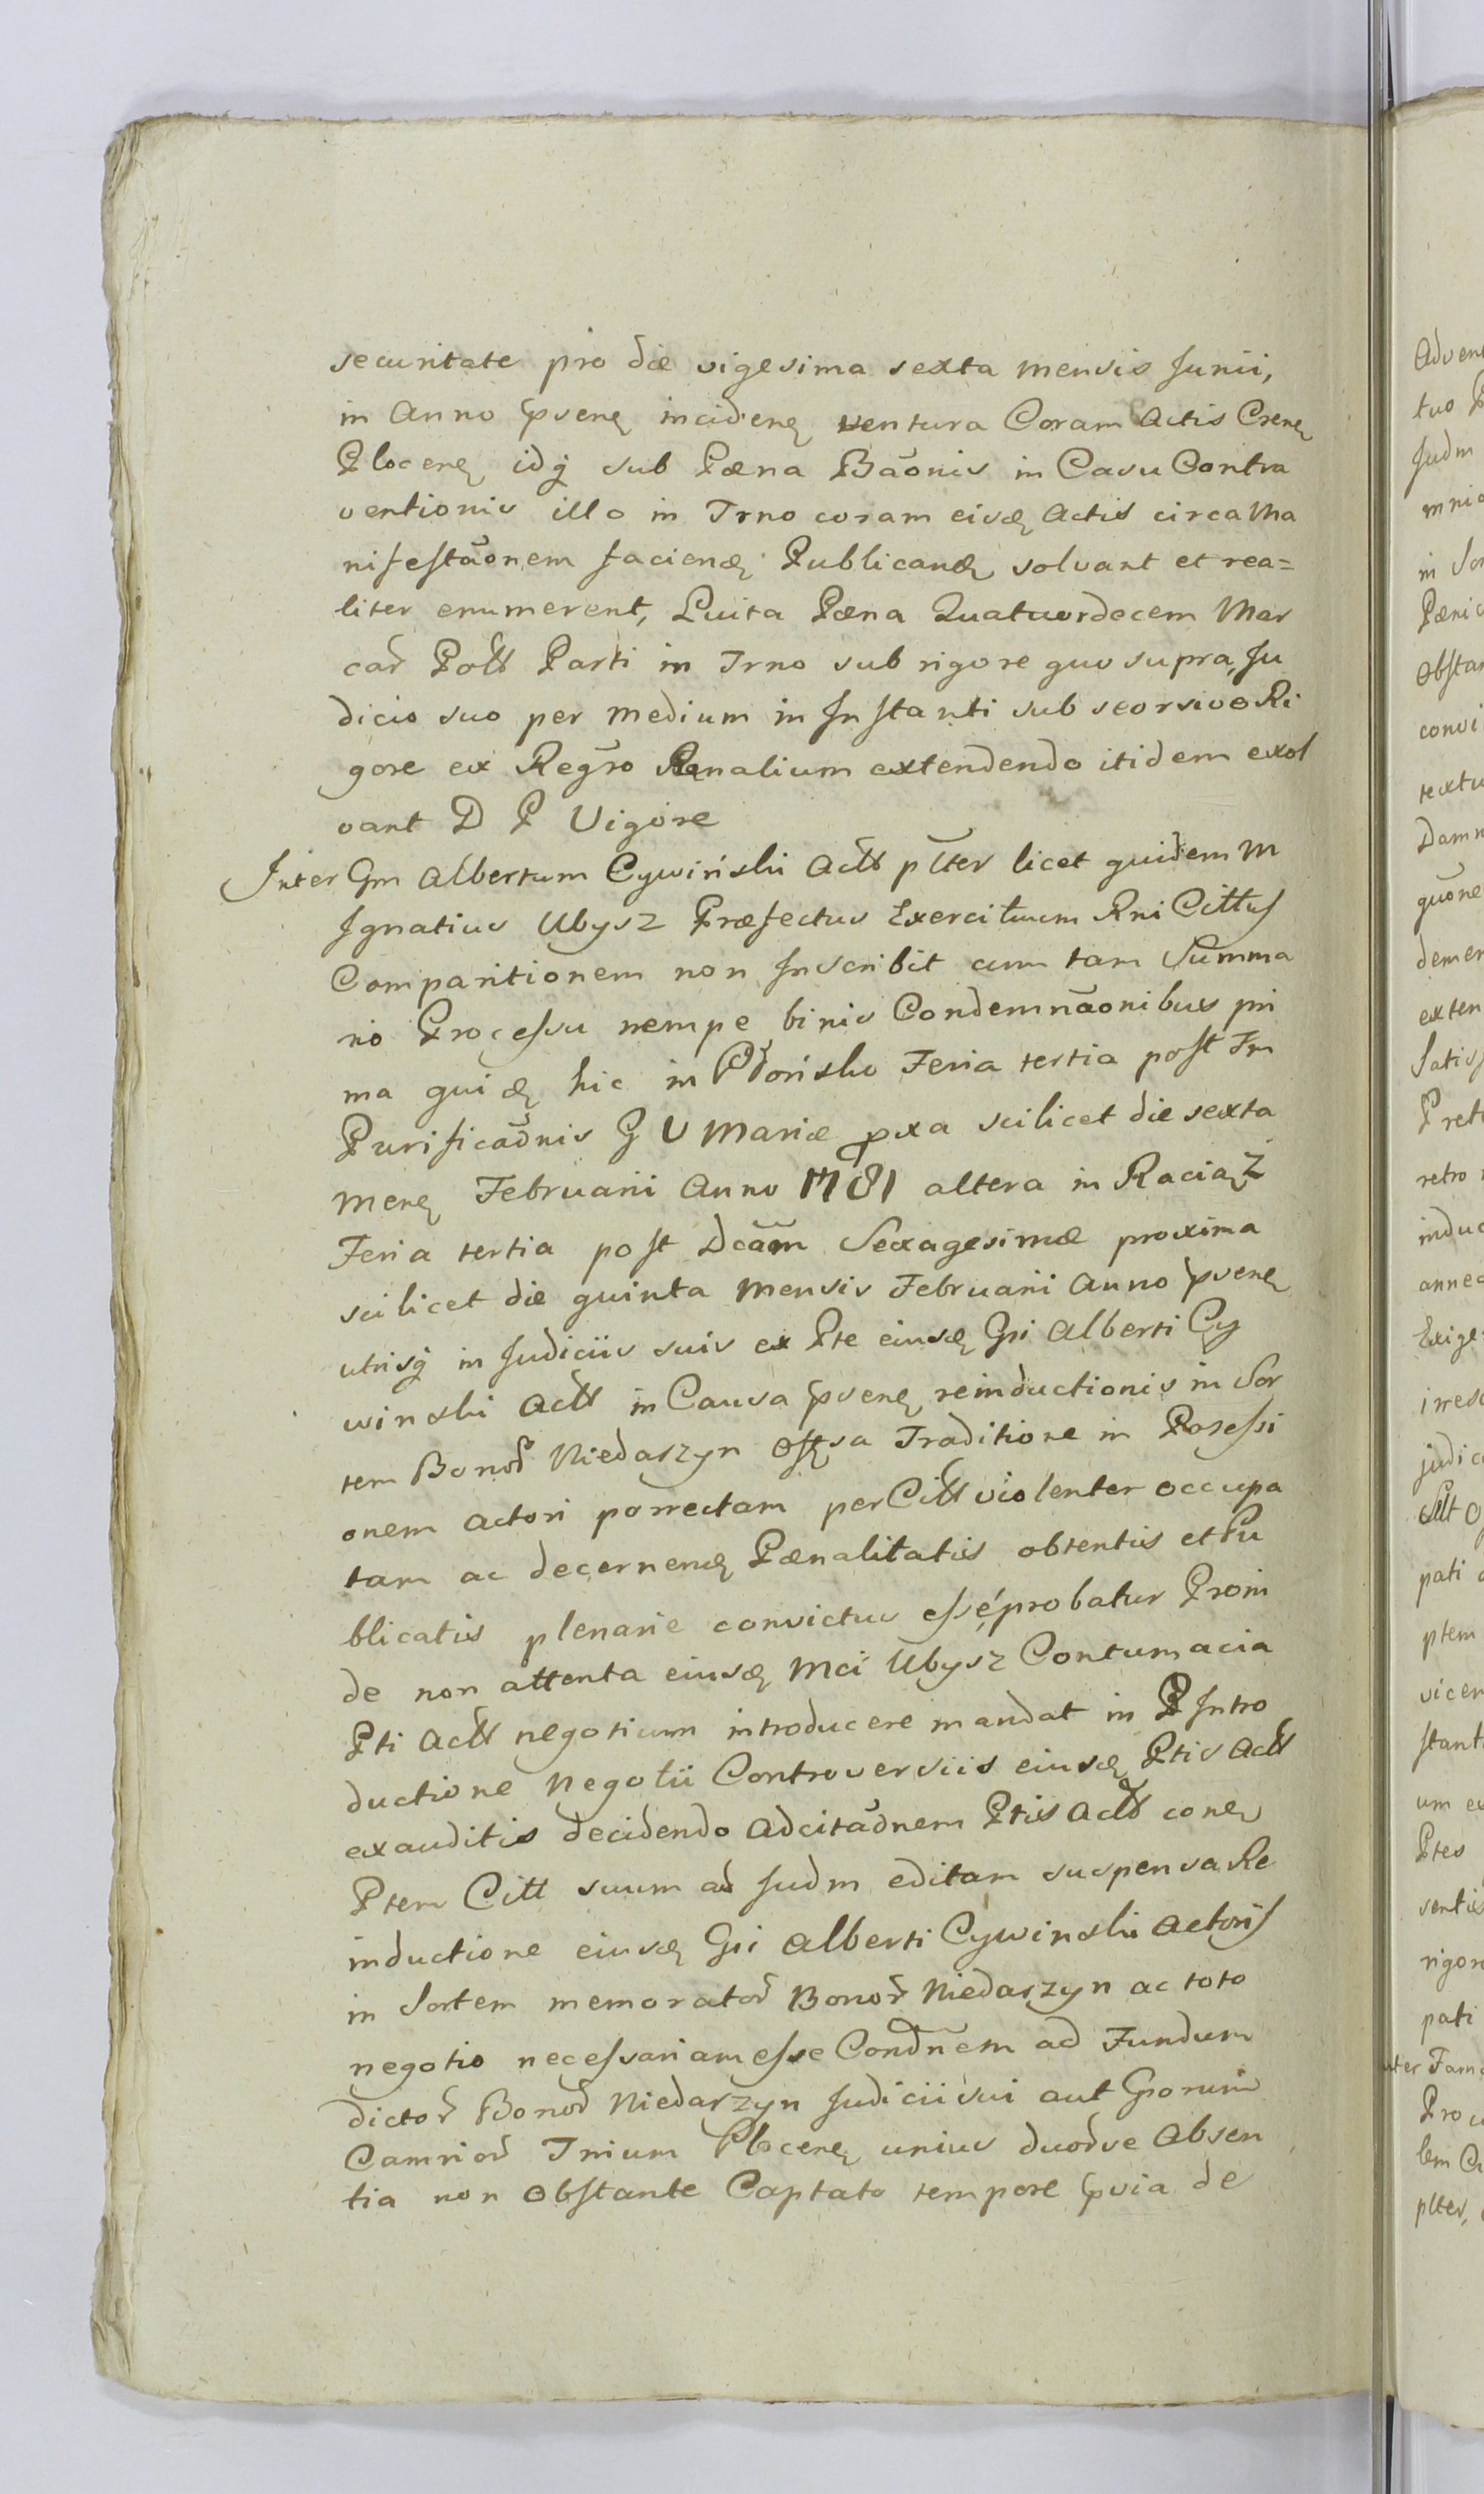 securitate pro die vigesima sexta mensis Junii,
in Anno pvenę incidenę ventura Coram Actis Crenę
Plocenę idq́ sub Pæna Bãonis in Casu Contra
ventionis illo in Trno coram eisdę Actis circa Ma
nifestãonem faciendę Publicandę solvant et rea=
liter enumerent, Luita Pæna Quatuordecem Mar
car̃ Pol̃t Parti in Trno sub rigore quo supra, Ju
dicio suo per medium in Instanti sub seorsivo Ri
gore ex Reg̃ro Pænalium extendendo itidem exol
vant D P Vigore
Inter Gm Albertum Cywiński Acl̃t pl̃ter licet quidem M
Ignatius Ubysz Præfectus Exercituum Rni Cittus
Comparitionem non Inscribit cum tam Summa
rio Processu nempe binis Condemnãonibus pri
ma quidę hic in Płońsko Feria tertia post Fm
Purificãonis B V Mariæ pxa scilicet die sexta
menę Februarii Anno 1781 altera in Raciąż
Feria tertia post Dcãm Sexagesimæ proxima
scilicet die quinta mensis Februarii Anno pvenę
utrisq́ in Judiciis suis ex Pte eiusdę Gsi Alberti Cy
winski Acl̃t in Causa pvenę reinductionis in Sor
tem Bonor̃ Niedarzyn Offsa Traditione in Possessi
onem Actori porrectam per Citt violenter occupa
tam ac decernendę Pænalitatis obtentis et Pu
blicatis plenarie convictus esse probatur Proin
de non attenta eiusdę Mci Ubysz Contumacia
Pti Acl̃t negotium introducere mandat in P Intro
ductione Negotii Controversiis eiusdę Ptis Acl̃t
exauditis decidendo Adcitãonem Ptis Acl̃t conę
Ptem Citt suum ad Judm editam suspensa Re
inductione eiusdę Gsi Alberti Cywinski Actoris
in Sortem memorator̃ Bonor̃ Niedarzyn ac toto
negotio necessariam esse Condnẽm ad Fundum
dictor̃ Bonor̃ Niedarzyn Judicii sui aut Gsorum
Camrior̃ Trium Plocenę unius duor̃ve Absen
tia non Obstante Captato tempore pvia de